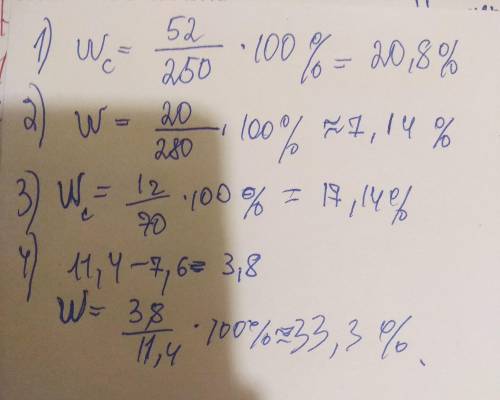 1) Wc = 52/250 · 100% = 20,8%
2) W = 20/280 · 100% ≈ 7,14 %
3) Wc = 12/70 · 100% = 17,14%
4) 11,4 – 7,6 = 3,8
W = 3,8/11,4 · 100% ≈ 33,3 %.